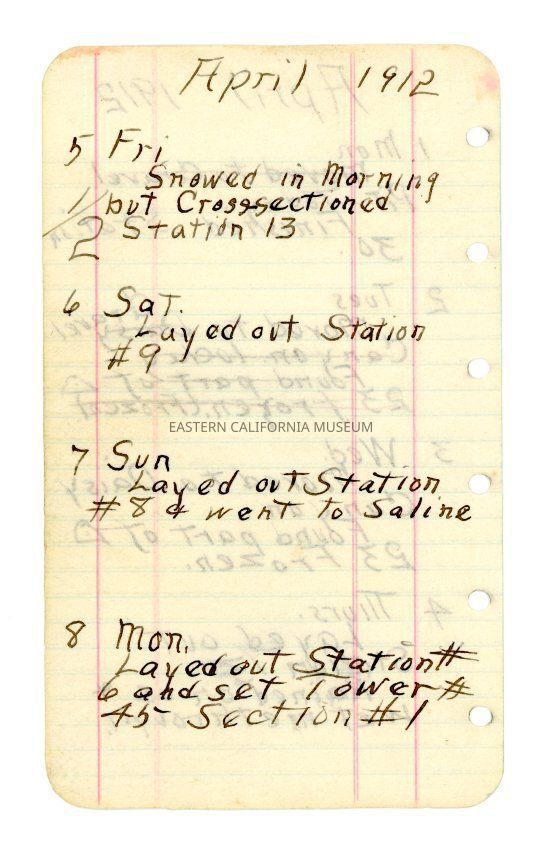 April 1912
5 Fri
Snowed in Morning
1/2 but Crosssectioned
Station 13
6 Sat.
Layed out Station
#9
EASTERN CALIFORNIA MUSEUM
7 Sun
Layed out Station
#8 & went to Saline
8 Mon.
Layed out Station #
6 and set Tower #
45 Section #1